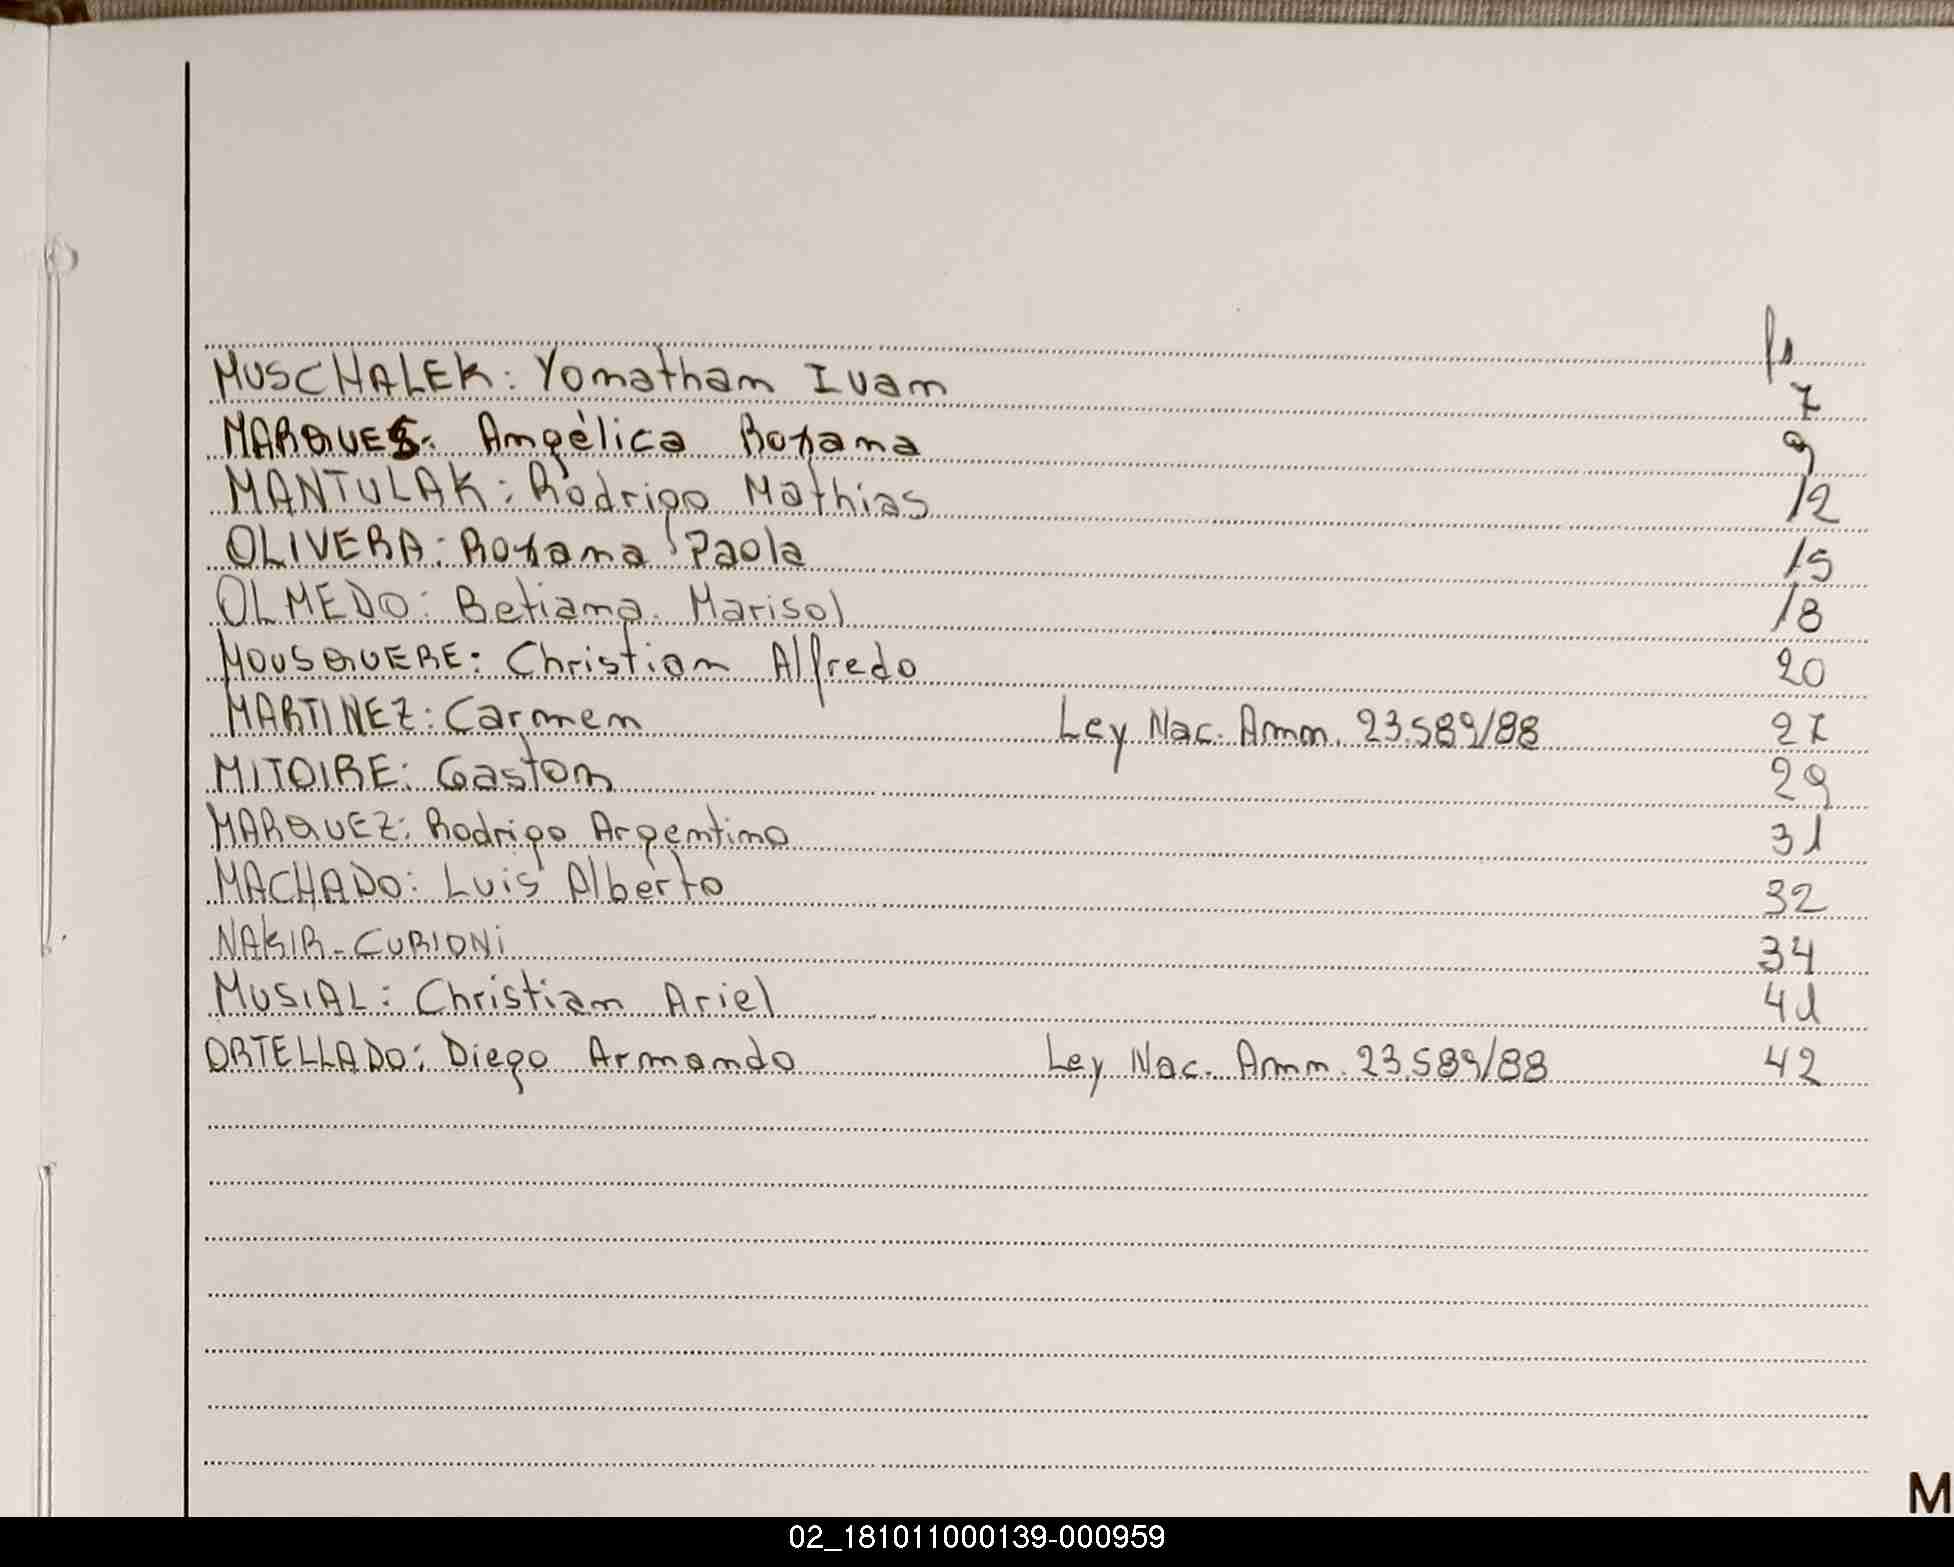 fs
MUSCHALEK: Yonathan Ivan 7
MARQUES: Angélica Roxana 9
MANTULAK: Rodrigo Mathias 12
OLIVERA: Roxana Paola 15
OLMEDO: Betiana Marisol 18
MOUSQUERE: Christian Alfredo 20
MARTINEZ: Carmen Ley Nac. Amn. 23.589/88 27
MITOIRE: Gaston 29
MARQUEZ: Rodrigo Argentino 31
MACHADO: Luis Alberto 32
NAKIR-CURIONI 34
MUSIAL: Christian Ariel 41
ORTELLADO: Diego Armando Ley Nac. Amn. 23.589/88 42
M
02_181011000139-000959